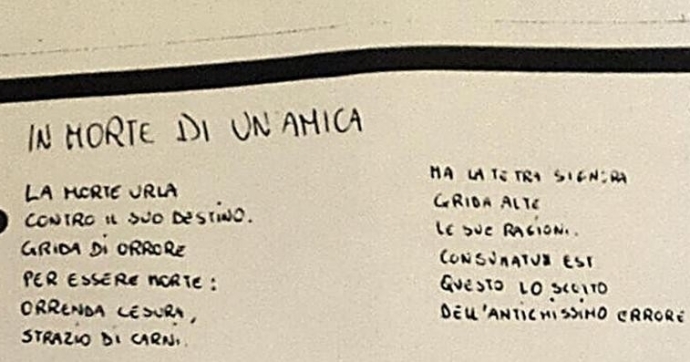 IN MORTE DI UN'AMICA
LA MORTE URLA
CONTRO IL SUO DESTINO.
GRIDA DI ORRORE
PER ESSERE MORTE:
ORRENDA CESURA,
STRAZIO DI CARNI.
MA LA TETRA SIGNORA
GRIDA ALTE
LE SUE RAGIONI.
CONSUMATUM EST
QUESTO LO SCOTTO
DELL'ANTICHISSIMO ERRORE